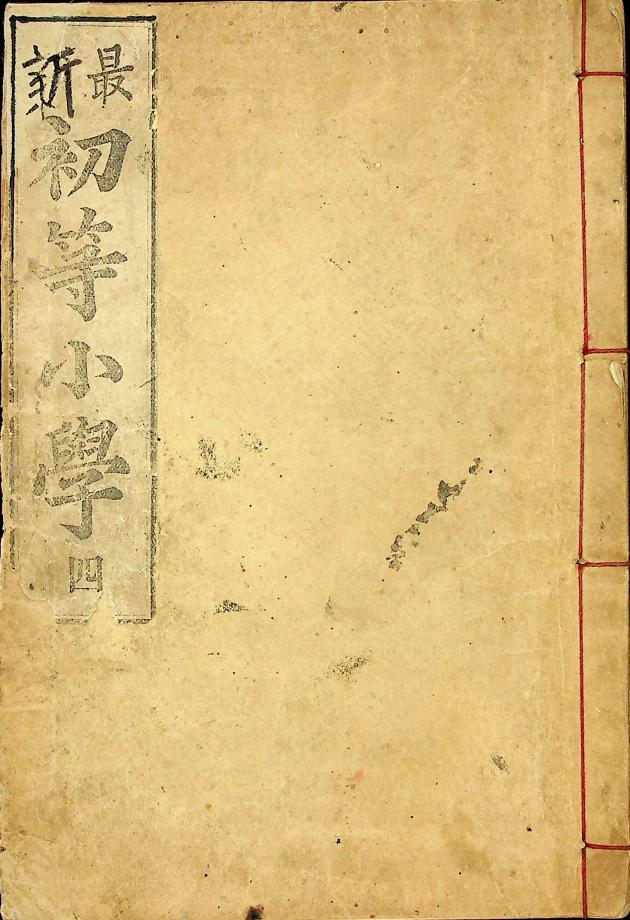 最新
初等小學
四